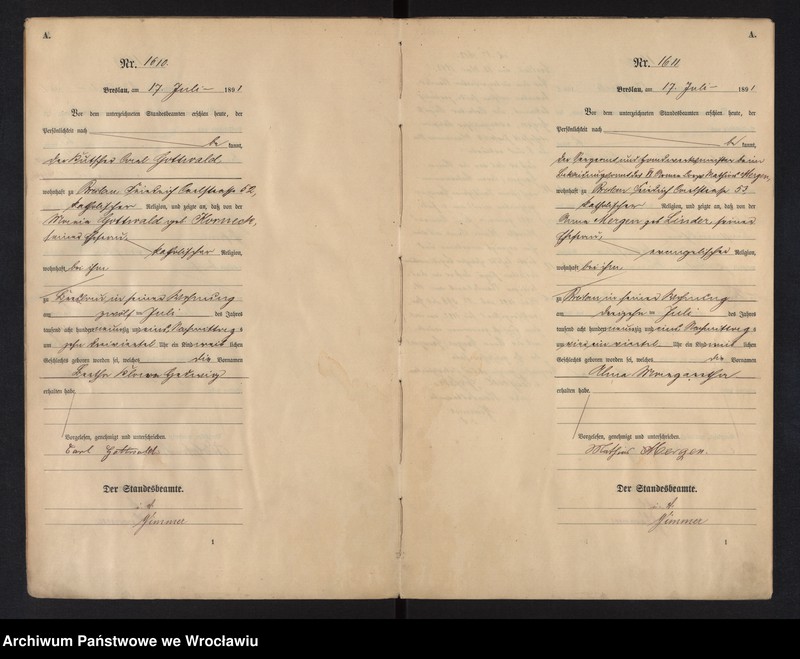 A.
Nr. 1610.
Breslau, am 17 Juli 1891
Vor dem unterzeichneten Standesbeamten erschien heute, der
Persönlichkeit nach
be kannt,
der Kutscher Carl Gottwald
wohnhaft zu Breslau Friedrich Carlstraße 52,
katholischer Religion, und zeigte an, daß von der
Maria Gottwald geb Horneck,
seiner Ehefrau,
katholischer Religion,
wohnhaft bei ihm
zu Breslau in seiner Wohnung
am zwölf ten Juli des Jahres
tausend acht hundert neunzig und eins Vormittags
um zehn dreiviertel Uhr ein Kind weib lichen
Geschlechts geboren worden sei, welches die Vornamen
Bertha Hedwig
erhalten habe.
Vorgelesen, genehmigt und unterschrieben.
Carl Gottwald.
Der Standesbeamte.
i. V.
Zimmer
1
A.
Nr. 1611
Breslau, am 17. Juli 1891
Vor dem unterzeichneten Standesbeamten erschien heute, der
Persönlichkeit nach
be kannt,
der Sergeant und beim
Bekleidungsamt des VI Armee Corps Mathias Mergen,
wohnhaft zu Breslau Friedrich Carlstraße 53
katholischer Religion, und zeigte an, daß von der
Anna Mergen geb Linder, seiner
Ehefrau,
evangelischer Religion,
wohnhaft bei ihm
zu Breslau in seiner Wohnung
am dreizehn ten Juli des Jahres
tausend acht hundert neunzig und eins Nachmittags
um vier ein viertel Uhr ein Kind weib lichen
Geschlechts geboren worden sei, welches die Vornamen
Alma Margarethe
erhalten habe.
Vorgelesen, genehmigt und unterschrieben.
Mathias Mergen.
Der Standesbeamte.
i. V.
Zimmer
1
Archiwum Państwowe we Wrocławiu